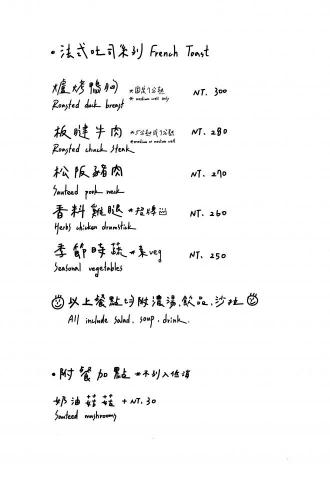 • 法式吐司系列 French Toast
爐烤鴨胸 *固定7分熟 NT. 300
Roasted duck breast * medium well only
板腱牛肉 *5分熟或7分熟 NT. 280
Roasted chuck steak * medium or medium well
松阪豬肉 NT. 270
Sauteed pork neck
香料雞腿 *招牌 NT. 260
Herbs chicken drumstick
季節時蔬 *素veg NT. 250
Seasonal vegetables
以上餐點均附濃湯.飲品.沙拉
All include salad. soup. drink.
• 附餐加點 *不列入低消
奶油菇菇 + NT. 30
Sauteed mushrooms